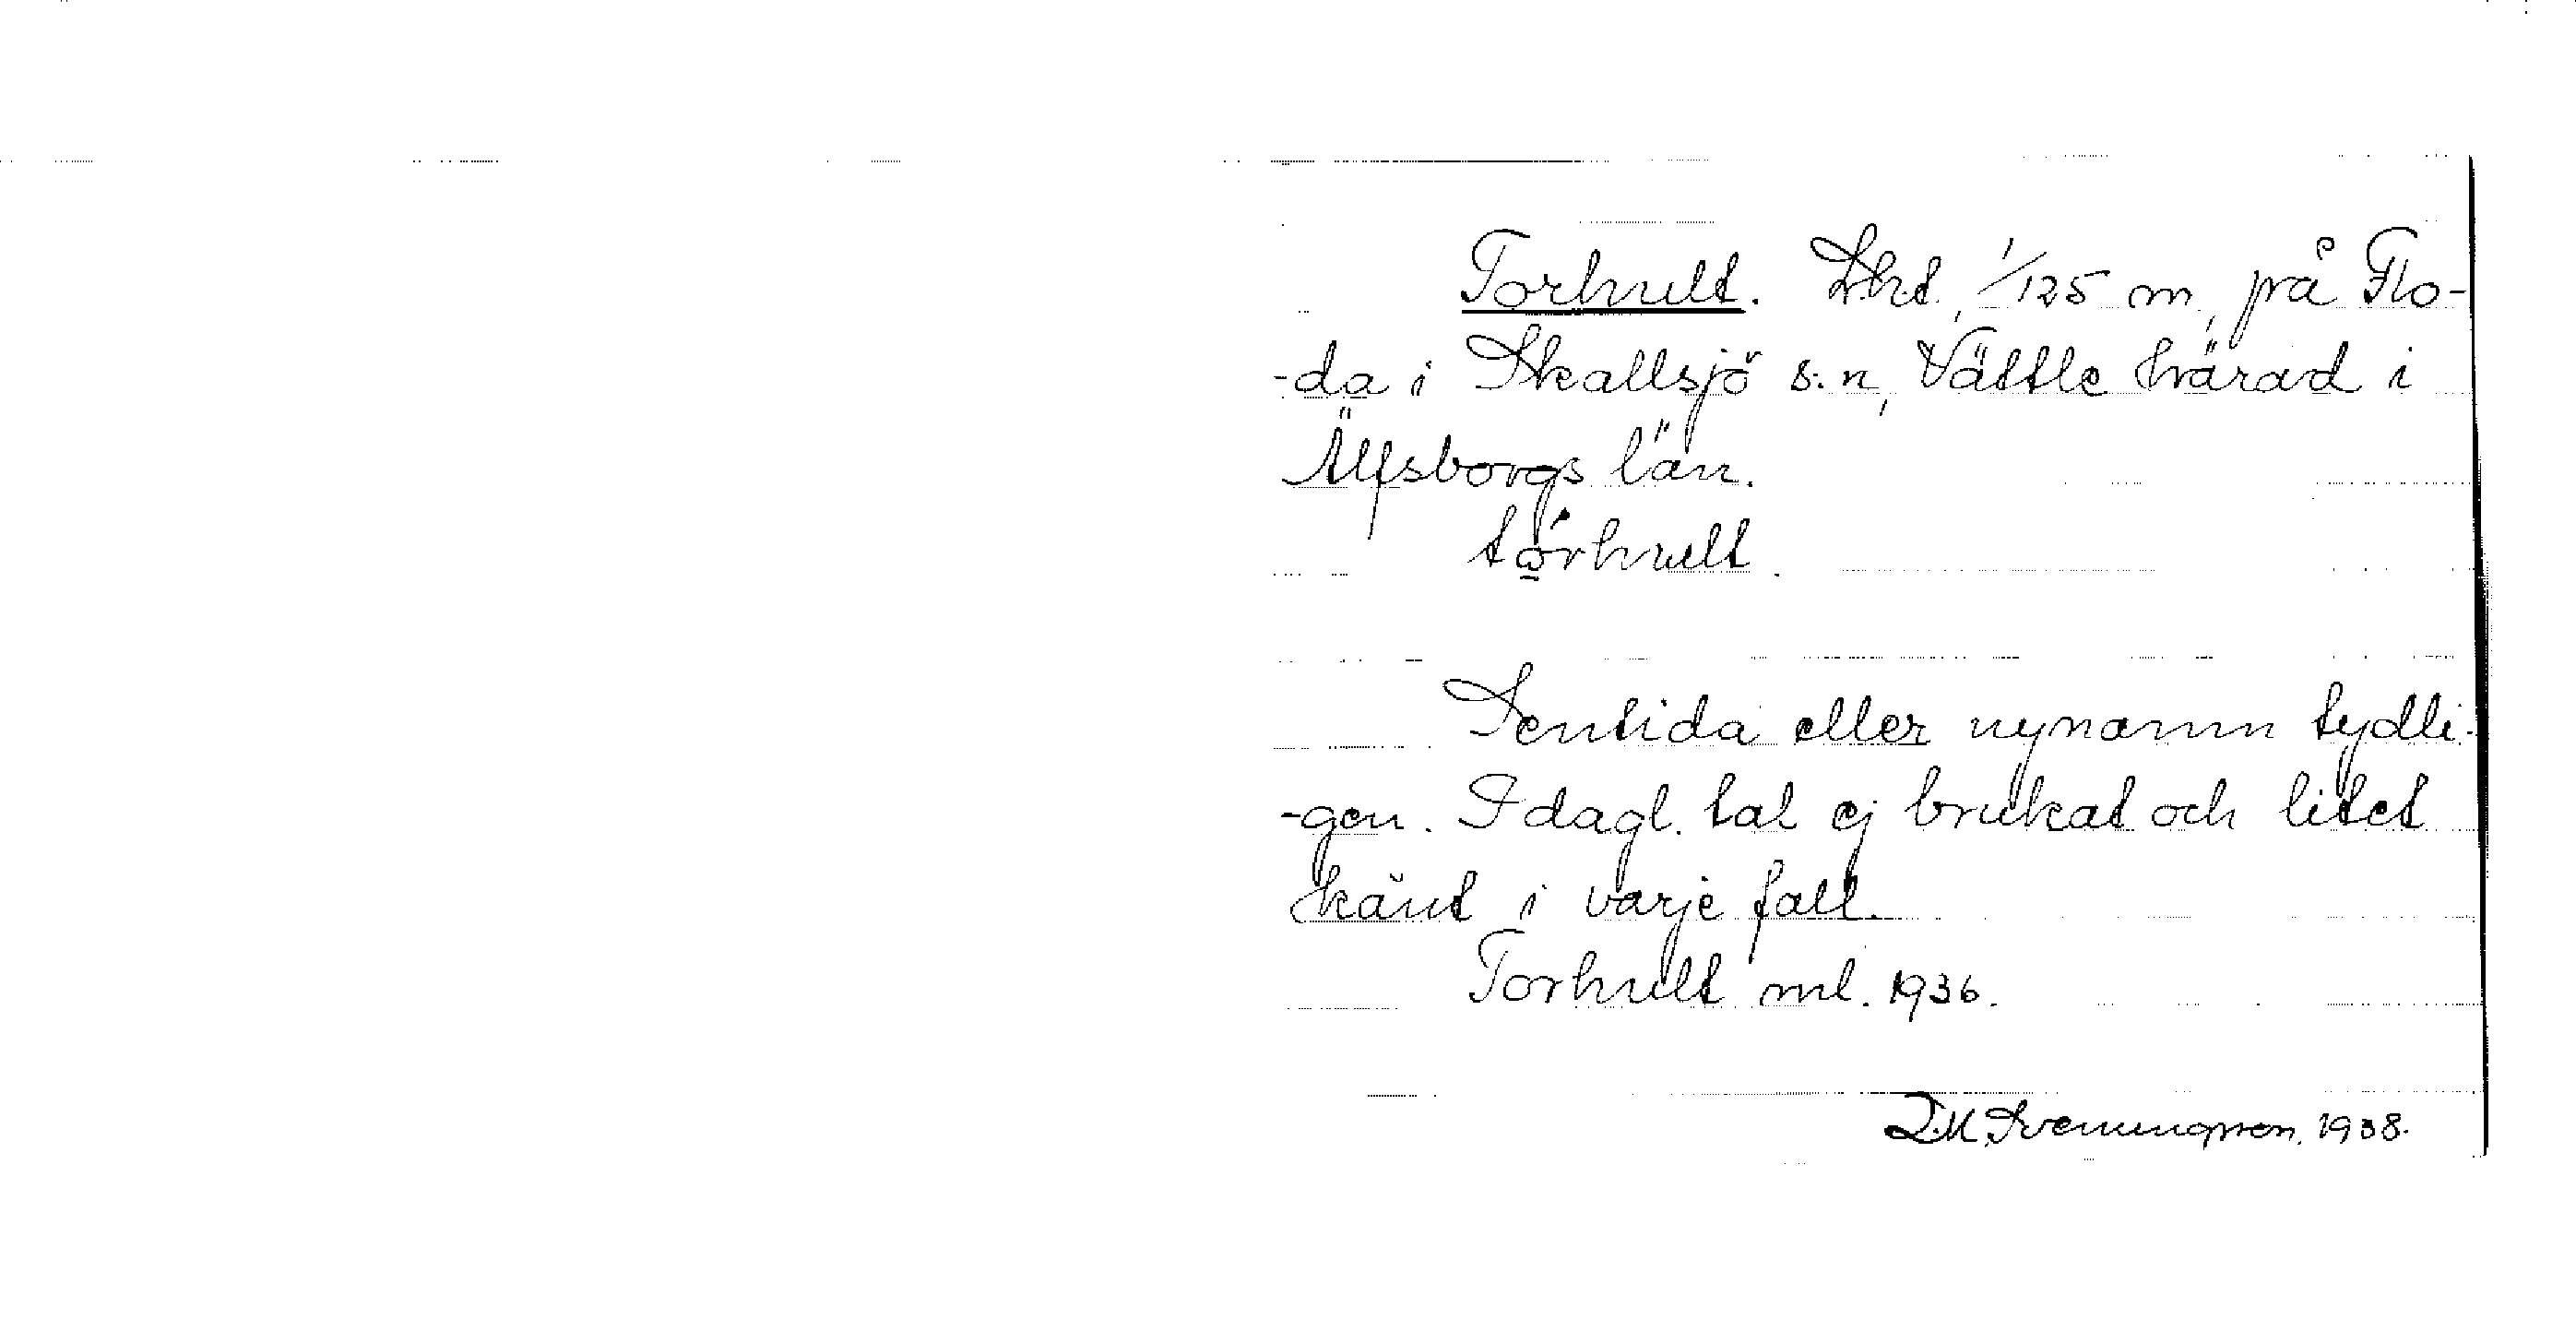 Torhult. Lht, 1/125 m, på Flo-
-da i Skallsjö s:n, Vättle härad i
Älfsborgs län.
tórhult.
Sentida eller nynamn tydli-
-gen. I dagl. tal ej brukat och litet
känt i varje fall.
Torhult ml. 1936.
D.M. Svenningsson. 1938.